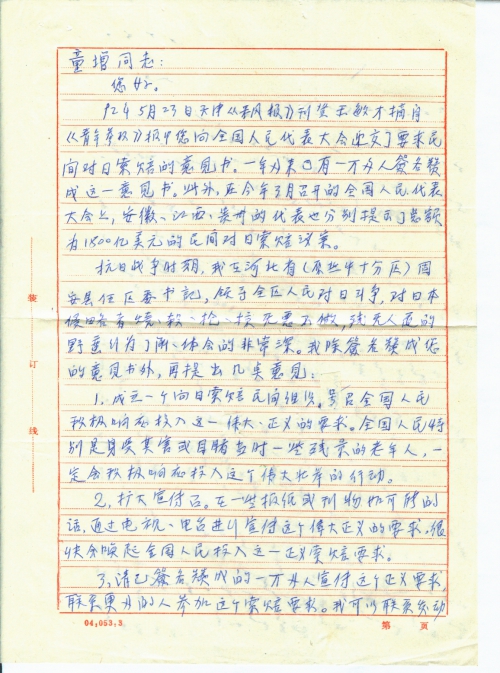 童增同志：
您好。
92年5月23日天津《采风报》刊登王敏才摘自
《青年参考》报中您向全国人民代表大会递交了要求民
间对日索赔的意见书。一年多来已有一万多人签名赞
成这一意见书。此外，在今年3月召开的全国人民代表
大会上，安徽、江西、贵州的代表也分别提出了总额
为1800亿美元的民间对日索赔议案。
抗日战争时期，我在河北省（原冀中十分区）固
安县任区委书记，领导全区人民对日斗争，对日本
侵略者烧、杀、抢、掠无恶不做，残无人道的
野蛮行为了解、体会的非常深。我除签名赞成您
的意见书外，再提出几条意见：
1.成立一个向日索赔民间组织。号召全国人民
积极响应投入这一伟大、正义的要求。全国人民特
别是身受其害或目睹当时一些残杀的老年人，一
定会积极响应投入这个伟大壮举的行动。
2.扩大宣传面。在一些报纸或刊物如可能的
话，通过电视、电台进行宣传这个伟大正义的要求，很
快会唤起全国人民投入这一正义索赔要求。
3.请已签名赞成的一万多人宣传这个正义要求，
联系更多的人参加这个索赔要求。我可以联系发动
装
订
线
04,053,3
第 页